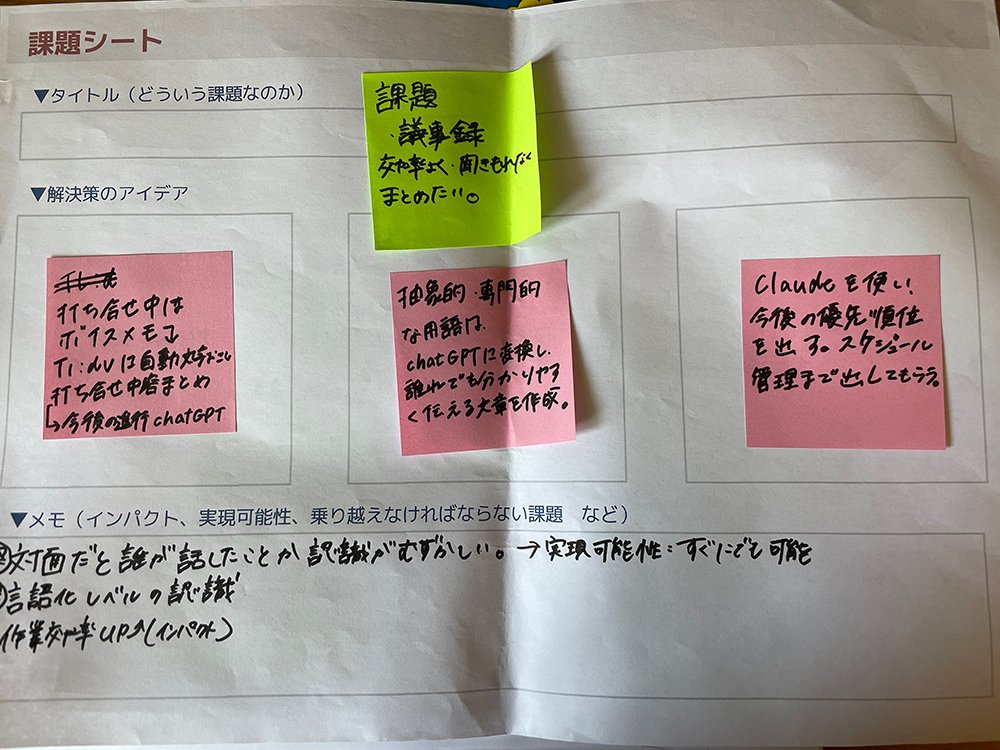 課題シート
▼タイトル（どういう課題なのか）
課題
・議事録
効率よく・聞きもれなく
まとめたい。
▼解決策のアイデア
打ち合せ中は
ボイスメモ↓
Ti:dvに自動文字おこし
打ち合せ内容まとめ
↳今後の進行chatGPT
抽象的・専門的
な用語は、
chatGPTに変換し、
誰れでも分かりやす
く伝える文章を作成。
Claudeを使い、
今後の優先順位
を出す。スケジュール
管理まで出してもらう。
▼メモ（インパクト、実現可能性、乗り越えなければならない課題　など）
対面だと誰が話したことか認識がむずかしい。→実現可能性：すぐにでも可能
言語化レベルの認識
作業効率UP↑(インパクト)